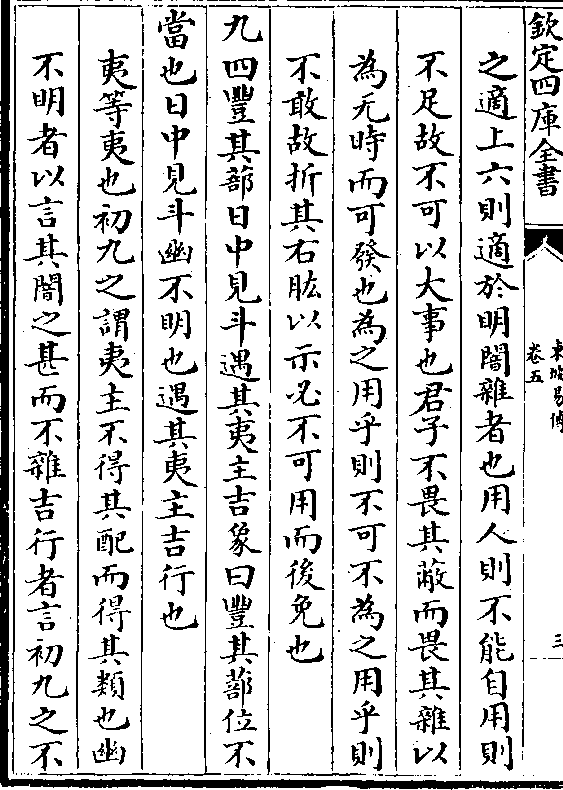 欽定四庫全書
東坡易傳
卷五
三
之適上六則適於明闇雜者也用人則不能自用則
不足故不可以大事也君子不畏其蔽而畏其雜以
為无時而可發也為之用乎則不可不為之用乎則
不敢故折其右肱以示必不可用而後免也
九四豐其蔀日中見斗遇其夷主吉象曰豐其蔀位不
當也日中見斗幽不明也遇其夷主吉行也
夷等夷也初九之謂夷主不得其配而得其類也幽
不明者以言其闇之甚而不雜吉行者言初九之不